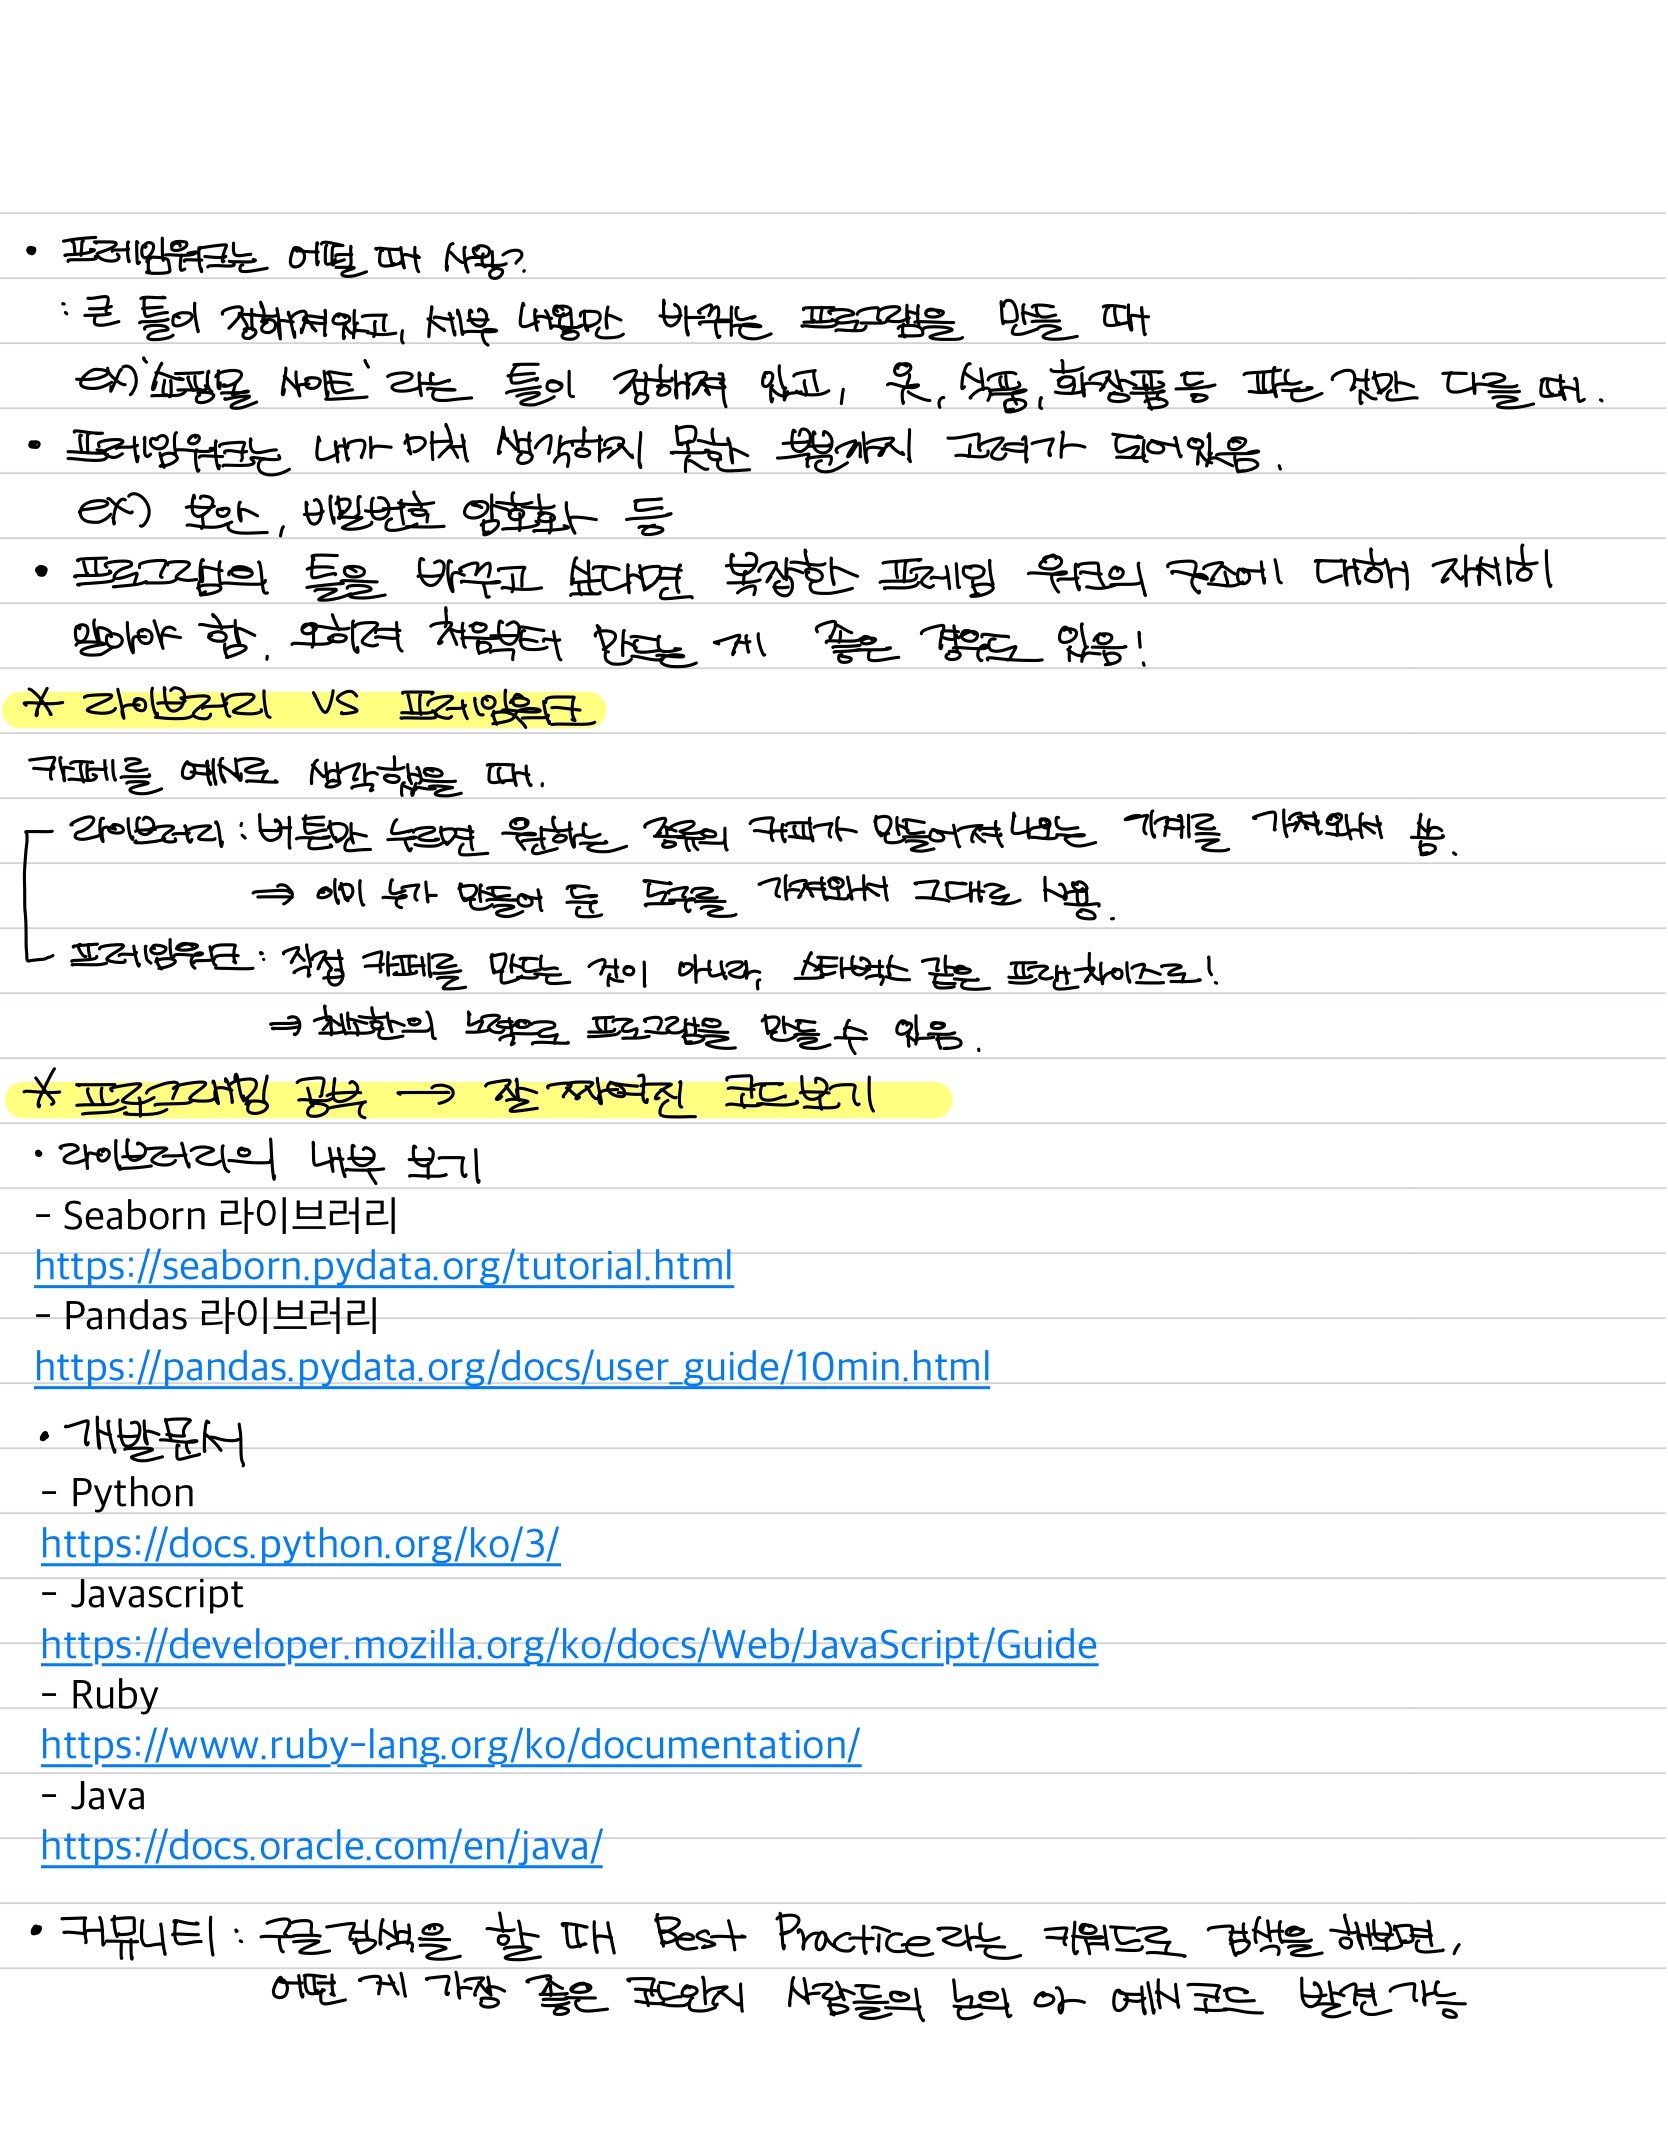 • 프레임워크는 어떨 때 사용?
: 큰 틀이 정해져있고, 세부 내용만 바꾸는 프로그램을 만들 때
ex) '쇼핑몰 사이트' 라는 틀이 정해져 있고, 옷, 식품, 화장품 등 파는 것만 다를 때.
• 프레임워크는 내가 미처 생각하지 못한 부분까지 고려가 되어있음.
ex) 보안, 비밀번호 암호화 등
• 프로그램의 틀을 바꾸고 싶다면 복잡한 프레임 워크의 구조에 대해 자세히
알아야 함. 오히려 처음부터 만드는 게 좋은 경우도 있음!
* 라이브러리 VS 프레임워크
카페를 예시로 생각했을 때.
라이브러리 : 버튼만 누르면 원하는 종류의 커피가 만들어져 나오는 기계를 가져와서 씀.
⇒ 이미 누가 만들어 둔 도구를 가져와서 그대로 사용.
프레임워크 : 직접 카페를 만드는 것이 아니라, 스타벅스 같은 프랜차이즈로!
⇒ 최소한의 노력으로 프로그램을 만들 수 있음.
* 프로그래밍 공부 → 잘 짜여진 코드보기
• 라이브러리의 내부 보기
- Seaborn 라이브러리
https://seaborn.pydata.org/tutorial.html
- Pandas 라이브러리
https://pandas.pydata.org/docs/user_guide/10min.html
• 개발문서
- Python
https://docs.python.org/ko/3/
- Javascript
https://developer.mozilla.org/ko/docs/Web/JavaScript/Guide
- Ruby
https://www.ruby-lang.org/ko/documentation/
- Java
https://docs.oracle.com/en/java/
• 커뮤니티 : 구글 검색을 할 때 Best Practice라는 키워드로 검색을 해보면,
어떤 게 가장 좋은 코드인지 사람들의 논의 아 예시코드 발견 가능